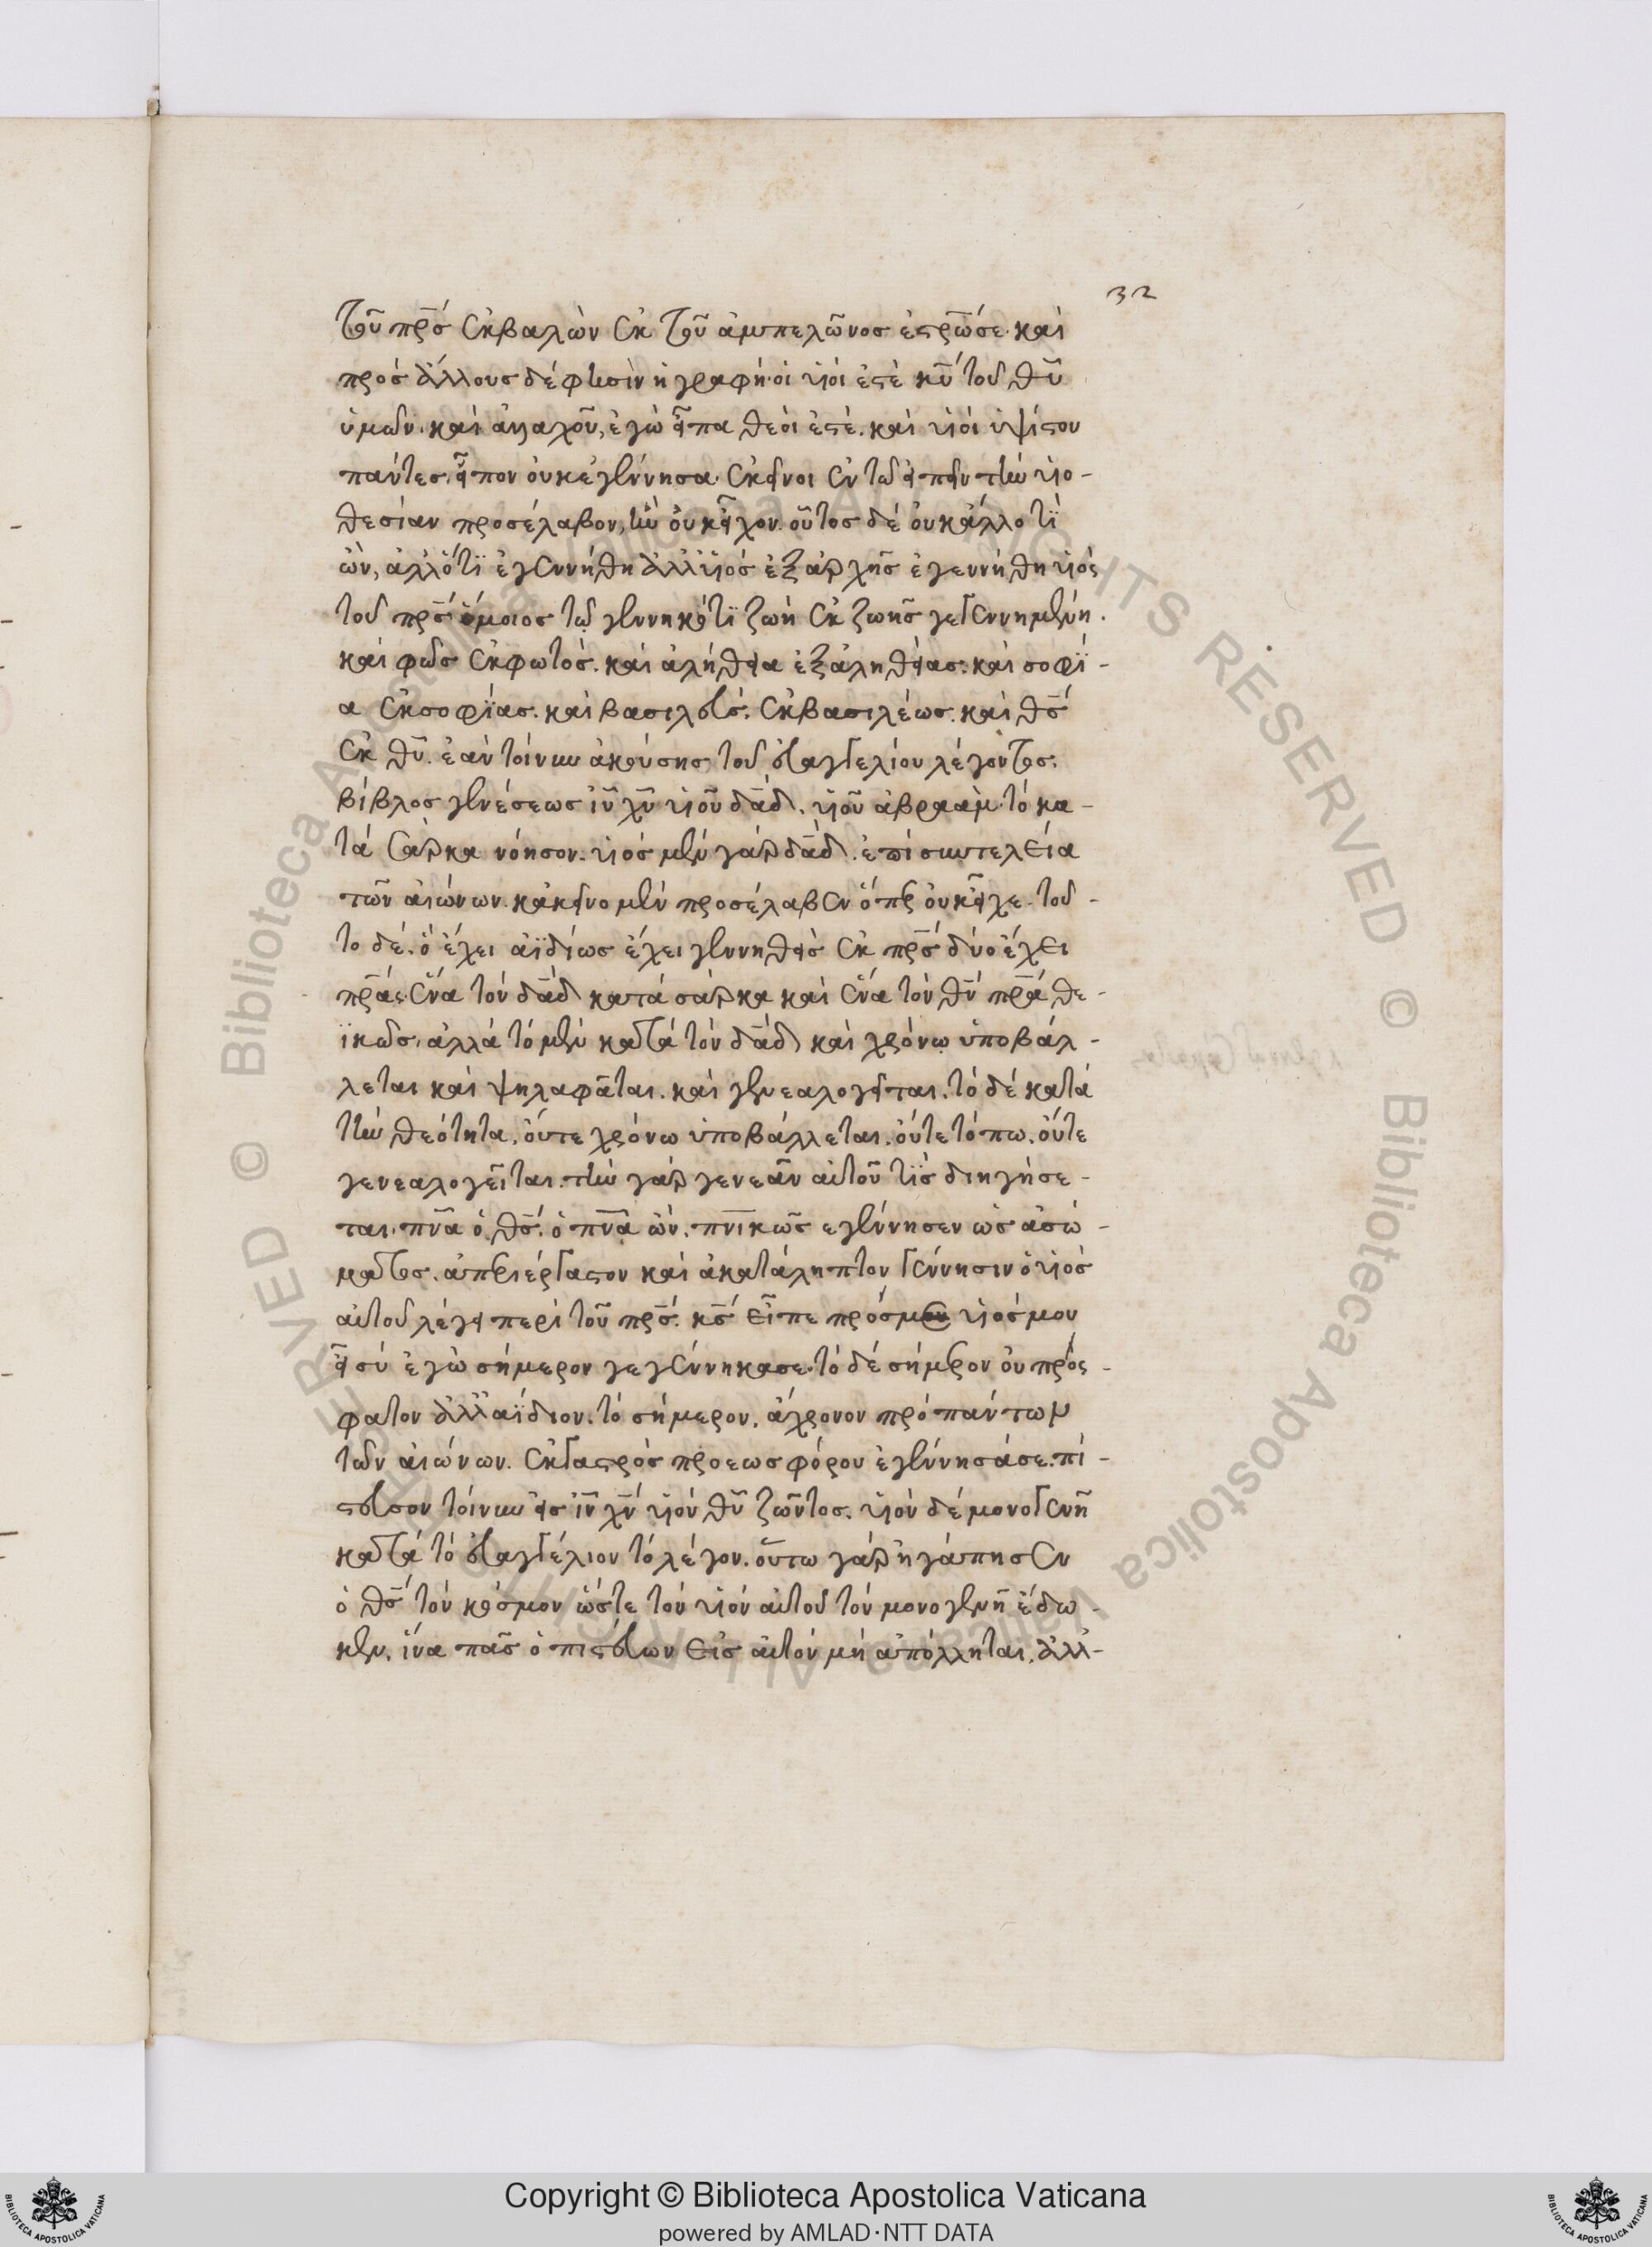 32
τοῦ πρ̅ς ἐκβαλὼν ἐκ τοῦ ἀμπελῶνος ἔτρωσε. καὶ
πρὸς ἄλλους δέ φησὶν ἡ γραφή. οἱ υἱοί ἐστὲ κ̅υ τοῦ θ̅υ
ὑμῶν. καὶ ἀλλαχοῦ, ἐγὼ εἶπα θεοί ἐστέ. καὶ υἱοὶ ὑψίστου
πάντες. εἶπον οὐκ ἐγέννησα. ἐκεῖνοι ἐν τῶ εἰπεῖν τὴν υἱο-
θεσίαν προσέλαβον, ἣν οὐκ εἶχον. οὗτος δὲ οὐκ ἄλλό τϊ
ὢν, ἀλλ' ὅτϊ ἐγεννήθη ἀλλ' υἱὸς ἐξ ἀρχῆς ἐγεννήθη υἱὸς
τοῦ πρ̅ς ὅμοιος τῷ γεννηκότϊ ζωὴ ἐκ ζωῆς γεγεννημένη.
καὶ φῶς ἐκ φωτός. καὶ ἀλήθεια ἐξ ἀληθείας. καὶ σοφϊ-
α ἐκ σοφϊας. καὶ βασιλεὺς, ἐκ βασιλέως. καὶ θ̅ς
ἐκ θ̅υ. ἐὰν τοίνυν ἀκούσης τοῦ εὐαγγελίου λέγοντος.
βίβλος γενέσεως ι̅υ χ̅υ υἱοῦ δα̅δ. υἱοῦ ἀβραάμ. τὸ κα-
τὰ σάρκα νόησον. υἱὸς μὲν γὰρ δα̅δ. ἐπὶ συντελεία
τῶν αἰώνων. κἀκεῖνο μὲν προσέλαβεν ὅπερ οὐκ εἶχε. τοῦ-
το δὲ. ὃ ἔχει ἀϊδίως ἔχει γεννηθεὶς ἐκ πρ̅ς δύο ἔχει
πρ̅ας ἕνα τὸν δα̅δ κατὰ σάρκα καὶ ἕνα τὸν θ̅ν πρ̅α θε-
ϊκῶς. ἀλλὰ τὸ μὲν κατὰ τὸν δα̅δ καὶ χρόνω ὑποβάλ-
λεται καὶ ψηλαφᾶται. καὶ γενεαλογεῖται. τὸ δὲ κατὰ
τὴν θεότητα, οὔτε χρόνω ὑποβάλλεται. οὔτε τόπω. οὔτε
γενεαλογεῖται. τὴν γὰρ γενεὰν αὐτοῦ τϊς διηγήσε-
ται. πν̅α ὁ θ̅ς. ὁ πν̅α ὢν, πν̅ικῶς ἐγέννησεν ὡς ἀσώ-
ματος. ἀπεριέργαστον καὶ ἀκατάληπτον γέννησιν ὁ υἱὸς
αὐτοῦ λέγει περὶ τοῦ πρ̅ς. κ̅ς εἶπε πρός με υἱός μου
εἶ σύ ἐγὼ σήμερον γεγέννηκά σε. τὸ δὲ σήμερον οὐ πρόσ-
φατον ἀλλ' ἀΐδιον. τὸ σήμερον, ἄχρονον πρὸ πάντων
τῶν αἰώνων. ἐκ γαστρὸς πρὸ εωσφόρου ἐγέννησά σε. πί-
στευσον τοίνυν εἰς ι̅ν χ̅ν υἱὸν θ̅υ ζῶντος. υἱὸν δὲ μονογενῆ
κατὰ τὸ εὐαγγέλιον τὸ λέγον. οὕτω γὰρ ἠγάπησεν
ὁ θ̅ς τὸν κόσμον ὥστε τὸν υἱὸν αὐτοῦ τὸν μονογενῆ ἔδω-
κεν, ἵνα πᾶς ὁ πιστεύων εἰς αὐτὸν μὴ ἀπόλληται. ἀλλ-
Copyright © Biblioteca Apostolica Vaticana
powered by AMLAD·NTT DATA